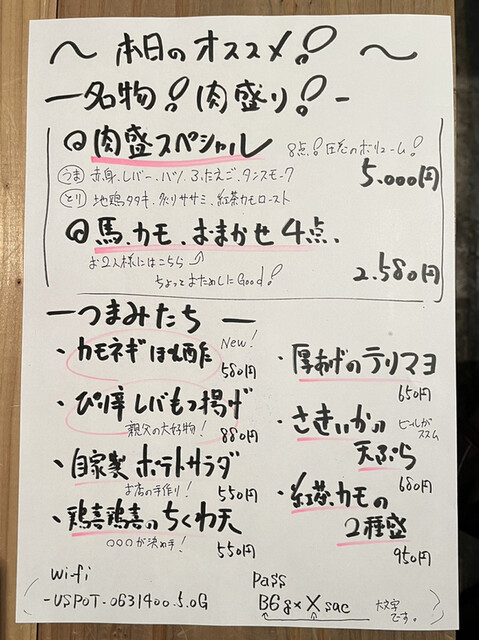 ～ 本日のオススメ! ～
ー名物!肉盛り!ー
◎肉盛スペシャル 8点!圧巻のボリューム!
うま 赤身.レバー.バソ.ふたえご.タンスモーク 5.000円
とり 地鶏タタキ.炙りササミ.紅茶カモロースト
◎馬.カモ.おまかせ4点.
お2人様にはこちら 2.580円
ちょっとおためしにGood!
ーつまみたち ー
・カモネギぽん酢 New! 580円
・ぴり辛レバもつ揚げ
親父の大好物! 880円
・自家製ポテトサラダ
お店の手作り! 550円
・鶏喜鶏喜のちくわ天
○○○が決め手! 550円
・厚あげのテリマヨ
650円
・さきいかの ビールがススム
天ぷら
680円
・紅茶カモの
2種盛
950円
Wi-fi
-USPOT-0631400.5.0G
Pass
B68xXsac 大文字です。